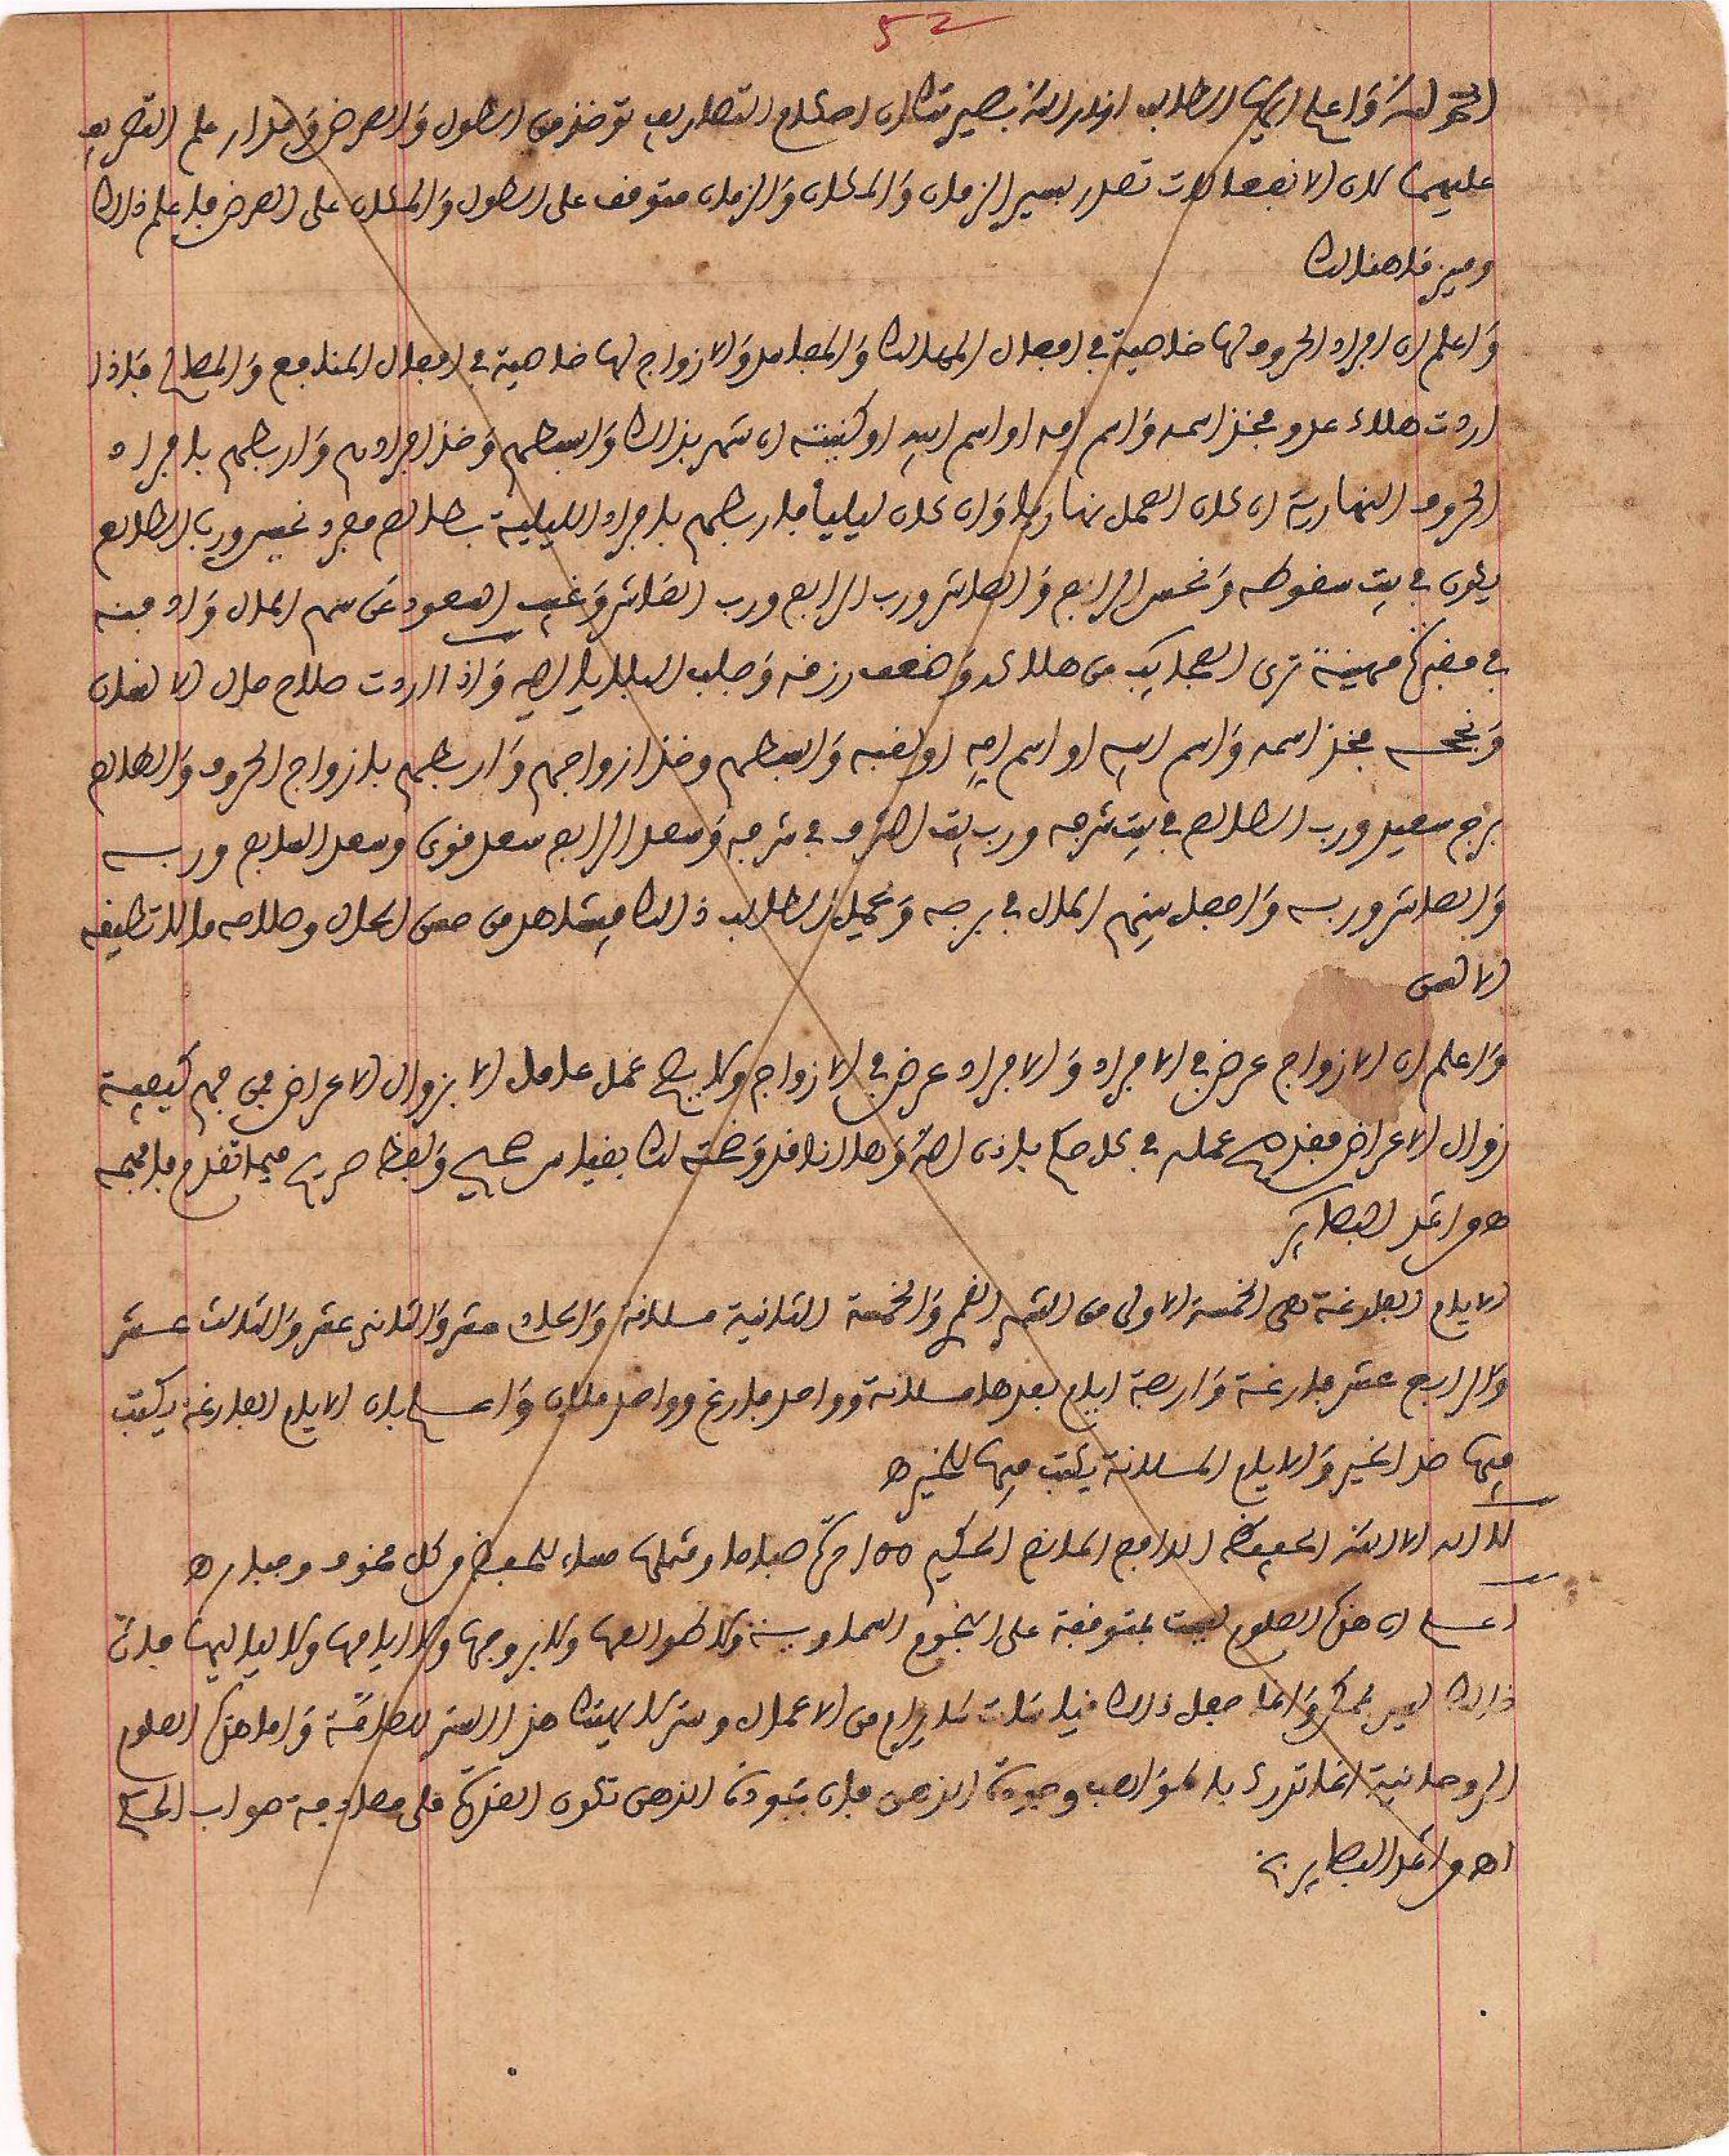 52
الحمد لله واعلم ايها الطالب انار الله بصيرتك ان احكام التصاريف توخذ من الطول والعرض ومدار علم التصريف
عليهما لان الانفعالات تصدر بسير الزمان والمكان والزمان متوقف على الطول والمكان على العرض فاعلم ذالك
وميز ما هنالك
واعلم ان افراد الحروف لها خاصية في افعال المهالك والمفاسد والازواج لها خاصية في افعال المنافع والمصالح فاذا
اردت هلاك عدو فخذ اسمه واسم امه او اسم ابيه او كنيته ان شهر بذالك وابسطهم وخذ افرادهم واربطهم بافراد
الحروف النهارية ان كان العمل نهاريا وان كان ليليا فاربطهم بافراد الليلية بطالع مفرد نحيس ورب الطالع
يكون في بيت سقوطه ونحس الرابع والعاشر ورب الرابع ورب العاشر وغيب السعود عن سهم المال وادفنه
في مقبرة مهينة ترى العجايب من هلاكه وضعف رزقه وجلب البلايا اليه واذا اردت صلاح حال الانسان
ونجحه فخذ اسمه واسم ابيه او اسم امه او لقبه وابسطهم وخذ ازواجهم واربطهم بازواج الحروف والطالع
برج سعيد ورب الطالع في بيت شرفه ورب بيت الشرف في شرفه وسعد الرابع سعد قوي وسعد السابع وربه
والعاشر وربه واجعل سهم المال في برجه ويحمل الطالب ذالك فيشاهد من حسن الحال وصلاحه ما لا تطيقه
الالسن
واعلم ان الازواج عرض في الافراد والافراد عرض في الازواج ولا يصح عمل عامل الا بزوال الاعراض فمن فهم كيفية
زوال الاعراض فقد صح عمله في كل حكم باذن الله وها انا قد وضحته لك بقياس صحيح ولفظ صريح فيما تقدم فافهمه
اهـ من اثمد البصاير
الايام الفارغة هي الخمسة الاولى من الشهر القمري والخمسة الثانية ملانة والحادي عشر والثاني عشر والثالث عشر
والرابع عشر فارغة واربعة ايام بعدها ملانة وواحد فارغ وواحد ملان واعلم بان الايام الفارغة يكتب
فيها ضد الخير والايام الملانة يكتب فيها للخير اهـ
لا اله الا الله الحفيظ الدافع المانع الحكيم 100 مرة صباحا ومثلها مساء للحفظ من كل مخوف وجبار اهـ
اعلم ان هذه العلوم ليست بمتوقفة على النجوم السماوية ولا طوالعها ولا بروجها ولا ايامها ولا لياليها فان
ذالك ليس بممكن وانما جعل ذالك قيل من الاعمال وستر لا يهتك هذا الستر للعامة واما هذه العلوم
الروحانية انما تدرك بالمواهب وجودة الذهن فان بجودة الذهن تكون القدرة على مصادفة صواب الحكم
اهـ من اثمد البصاير